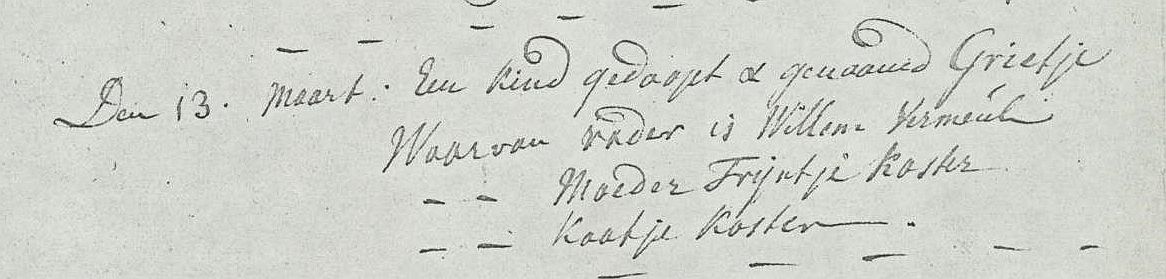 Den 13. Maart: Een kind gedoopt & genaamd Grietje
Waarvan vader is Willem Vermeul
– – Moeder Trijntje Koster
– – Kaatje Koster – .